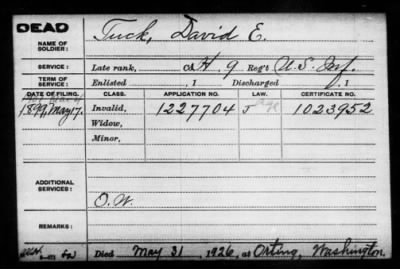 DEAD
NAME OF SOLDIER: Tuck, David E.
SERVICE: Late rank, Co. H. 9 Reg't U.S. Inf.
TERM OF SERVICE: Enlisted , 1 Discharged , 1
DATE OF FILING. CLASS. APPLICATION NO. LAW. CERTIFICATE NO.
1899, May 17. Invalid, 1227704 J 1023952
Widow,
Minor,
ADDITIONAL SERVICES:
O.W.
REMARKS:
Died May 31, 1926, at Orting, Washington.